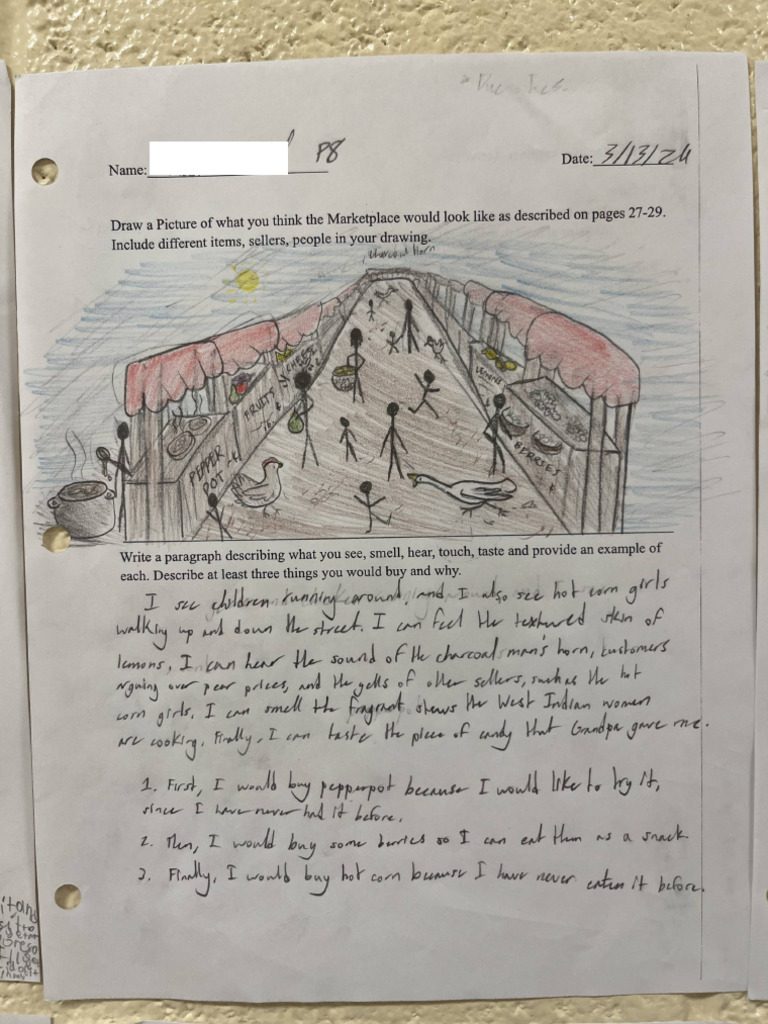 Name: P8 Date: 3/13/24
Draw a Picture of what you think the Marketplace would look like as described on pages 27-29.
Include different items, sellers, people in your drawing.
charcoal Horn
CHEESE
FRUITS
PEPPER
POT
LEMONS
BERRIES
Write a paragraph describing what you see, smell, hear, touch, taste and provide an example of
each. Describe at least three things you would buy and why.
I see children running around, and I also see hot corn girls
walking up and down the street. I can feel the textured skin of
lemons, I can hear the sound of the charcoal man's horn, customers
arguing over pear prices, and the yells of other sellers, such as the hot
corn girls. I can smell the fragrant stews the West Indian women
are cooking. Finally, I can taste the piece of candy that Grandpa gave me.
1. First, I would buy pepperpot because I would like to try it,
since I have never had it before.
2. Then, I would buy some berries so I can eat them as a snack.
3. Finally, I would buy hot corn because I have never eaten it before.